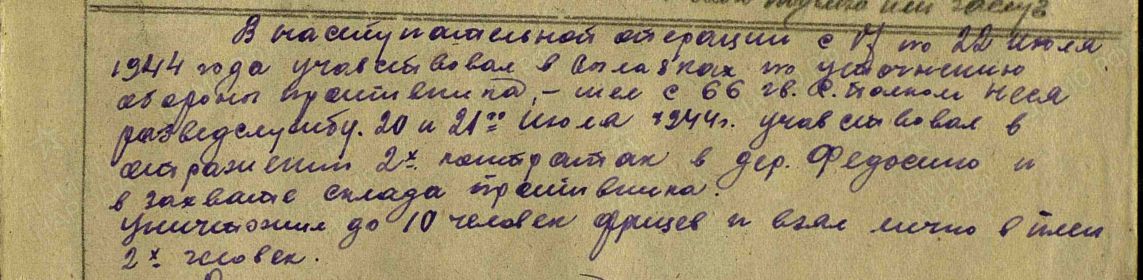 подвига или заслуг
В наступательной операции с 17 по 22 июля
1944 года участвовал в вылазках по уточнению
обороны противника, – шел с 66 гв. с. полком неся
разведслужбу. 20 и 21го июля 1944г. участвовал в
отражении 2х контратак в дер. Федосино и
в захвате склада противника.
Уничтожил до 10 человек фрицев и взял лично в плен
2х человек.